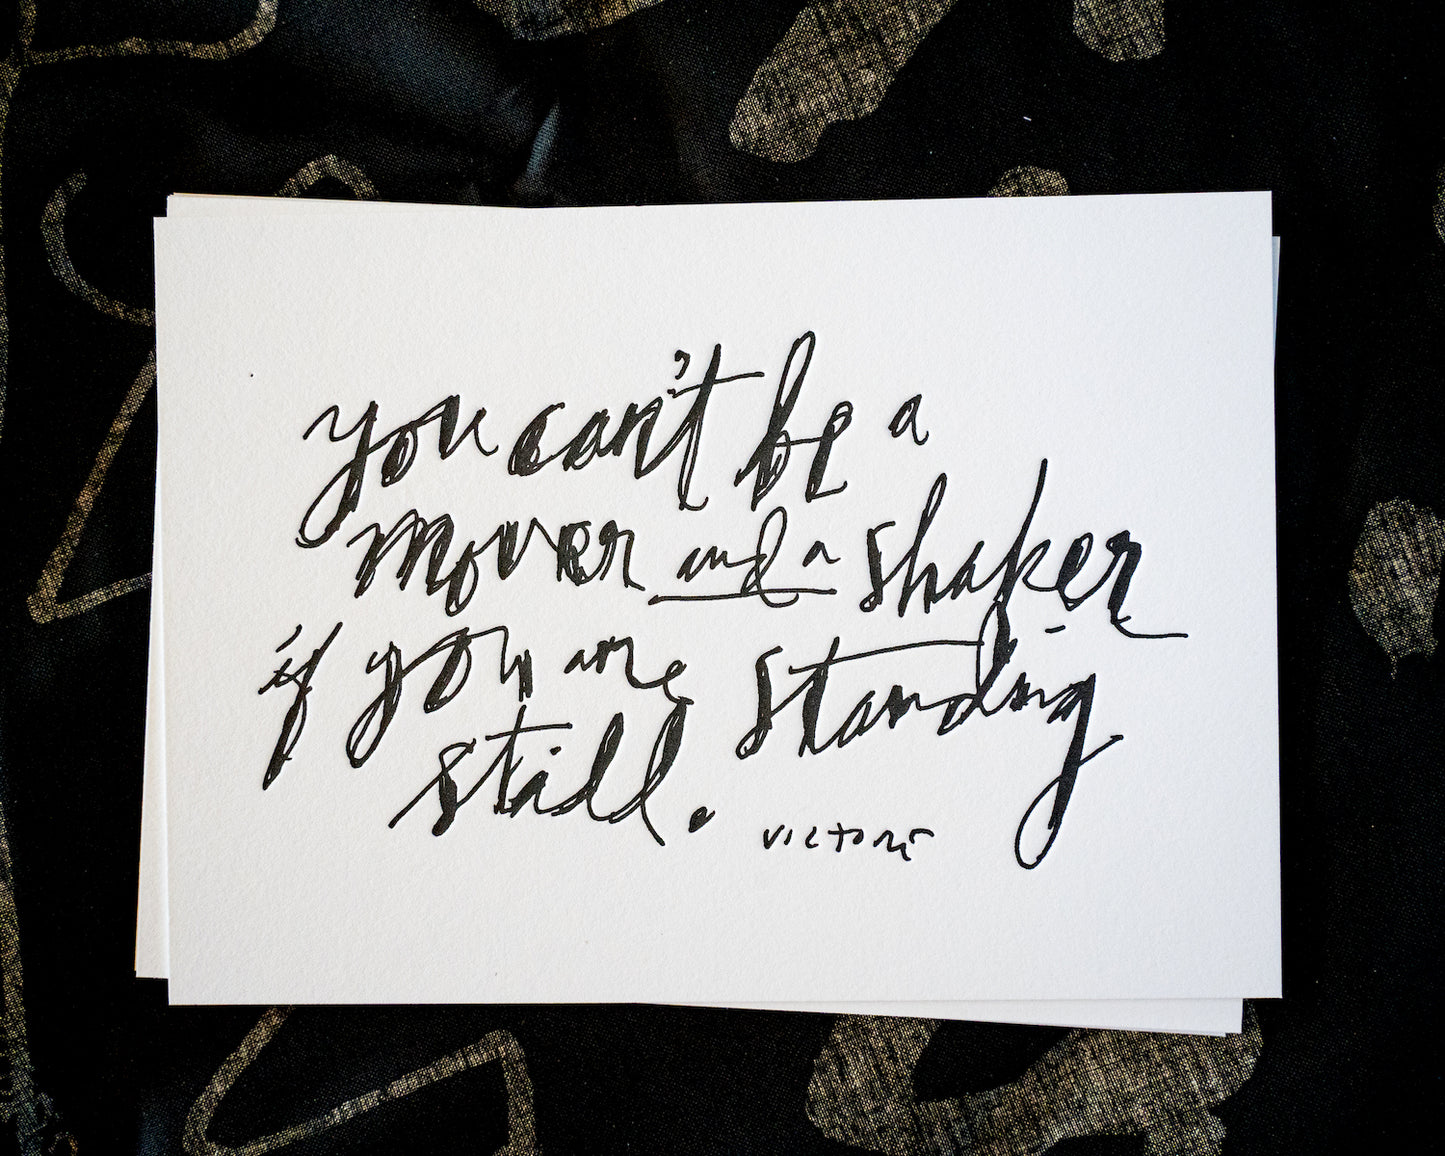 you can't be a
mover and a shaker
if you are standing
still.
victore